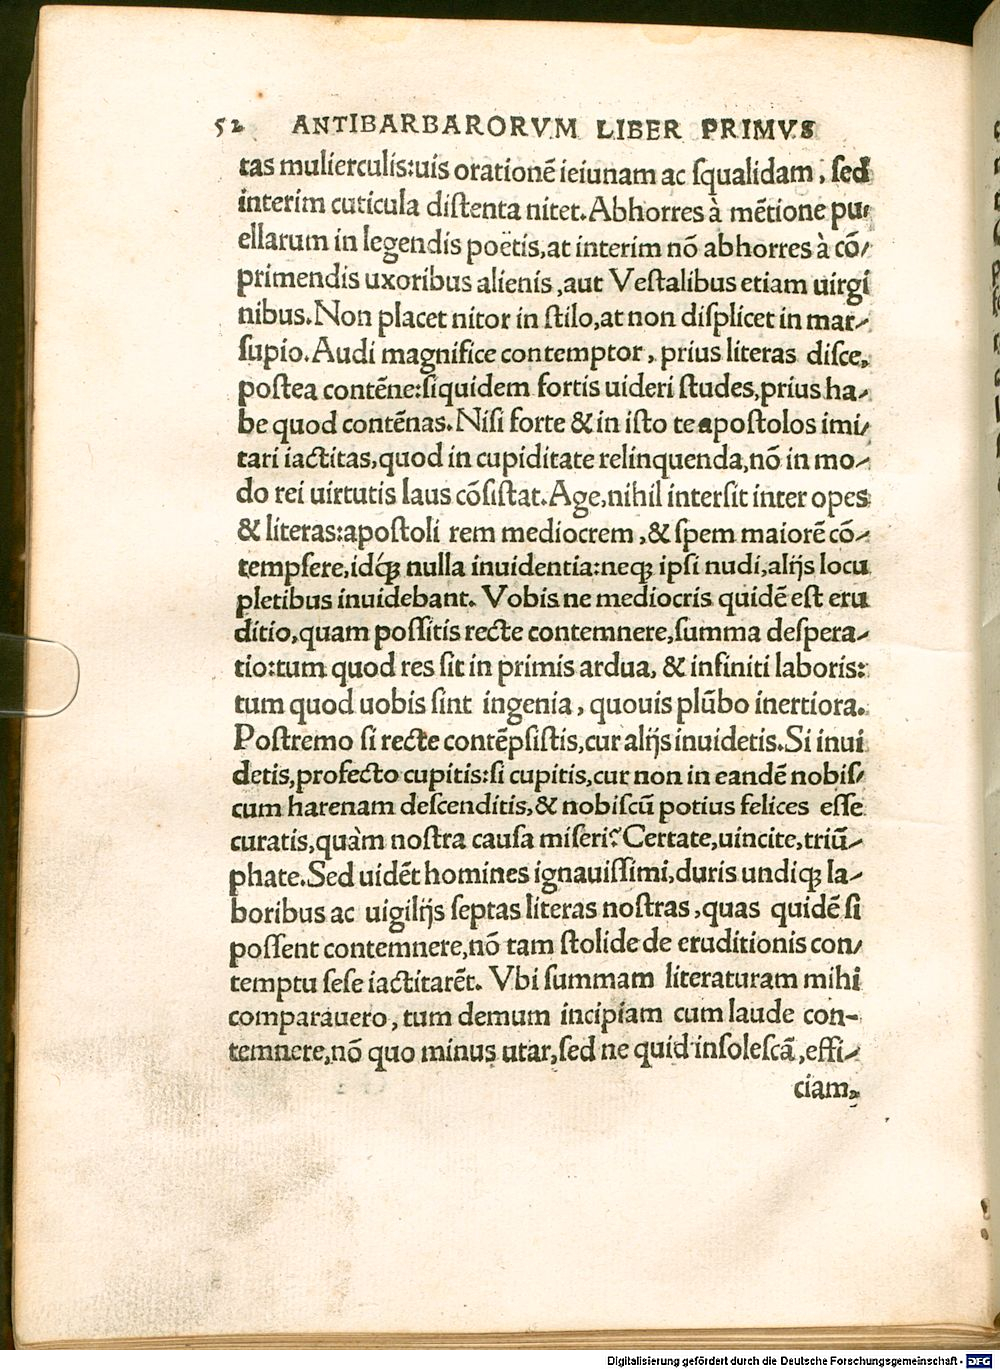 52 ANTIBARBARORVM LIBER PRIMVS
tas mulierculis:uis orationē ieiunam ac ſqualidam, ſed
interim cuticula diſtenta nitet.Abhorres à mētione pu-
ellarum in legendis poëtis,at interim nō abhorres à cō-
primendis uxoribus alienis,aut Veſtalibus etiam uirgi
nibus.Non placet nitor in ſtilo,at non diſplicet in mar-
ſupio.Audi magnifice contemptor, prius literas diſce,
poſtea contēne:ſiquidem fortis uideri ſtudes,prius ha-
be quod contēnas.Niſi forte & in iſto te apoſtolos imi-
tari iactitas,quod in cupiditate relinquenda,nō in mo-
do rei uirtutis laus cōſiſtat.Age,nihil interſit inter opes
& literas:apoſtoli rem mediocrem,& ſpem maiorē cō-
tempſere,idq́ꝫ nulla inuidentia:neqꝫ ipſi nudi,alijs locu
pletibus inuidebant. Vobis ne mediocris quidē eſt eru
ditio,quam poſſitis recte contemnere,ſumma deſpera-
tio:tum quod res ſit in primis ardua, & infiniti laboris:
tum quod uobis ſint ingenia, quouis plūbo inertiora.
Poſtremo ſi recte contēpſiſtis,cur alijs inuidetis.Si inui
detis,profecto cupitis:ſi cupitis,cur non in eandē nobiſ-
cum harenam deſcenditis,& nobiſcū potius felices eſſe
curatis,quàm noſtra cauſa miſeri? Certate,uincite,triū-
phate.Sed uidēt homines ignauiſſimi,duris undiqꝫ la-
boribus ac uigilijs ſeptas literas noſtras,quas quidē ſi
poſſent contemnere,nō tam ſtolide de eruditionis con-
temptu ſeſe iactitarēt. Vbi ſummam literaturam mihi
comparauero, tum demum incipiam cum laude con-
temnere,nō quo minus utar,ſed ne quid inſoleſcā,effi-
ciam,
Digitalisierung gefördert durch die Deutsche Forschungsgemeinschaft - DFG